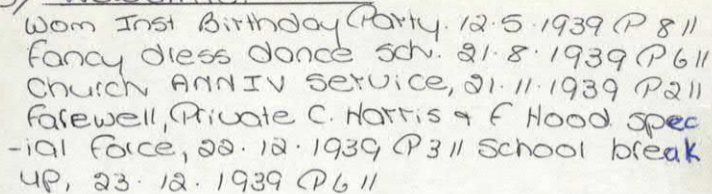 Wom Inst Birthday Party. 12.5.1939 P 8 //
Fancy dress dance sch. 21.8.1939 P 6 //
Church ANNIV Service, 21.11.1939 P 2 //
Farewell, Private C. Harris & F Hood spec
-ial Force, 22.12.1939 P 3 // School break
up, 23.12.1939 P 6 //